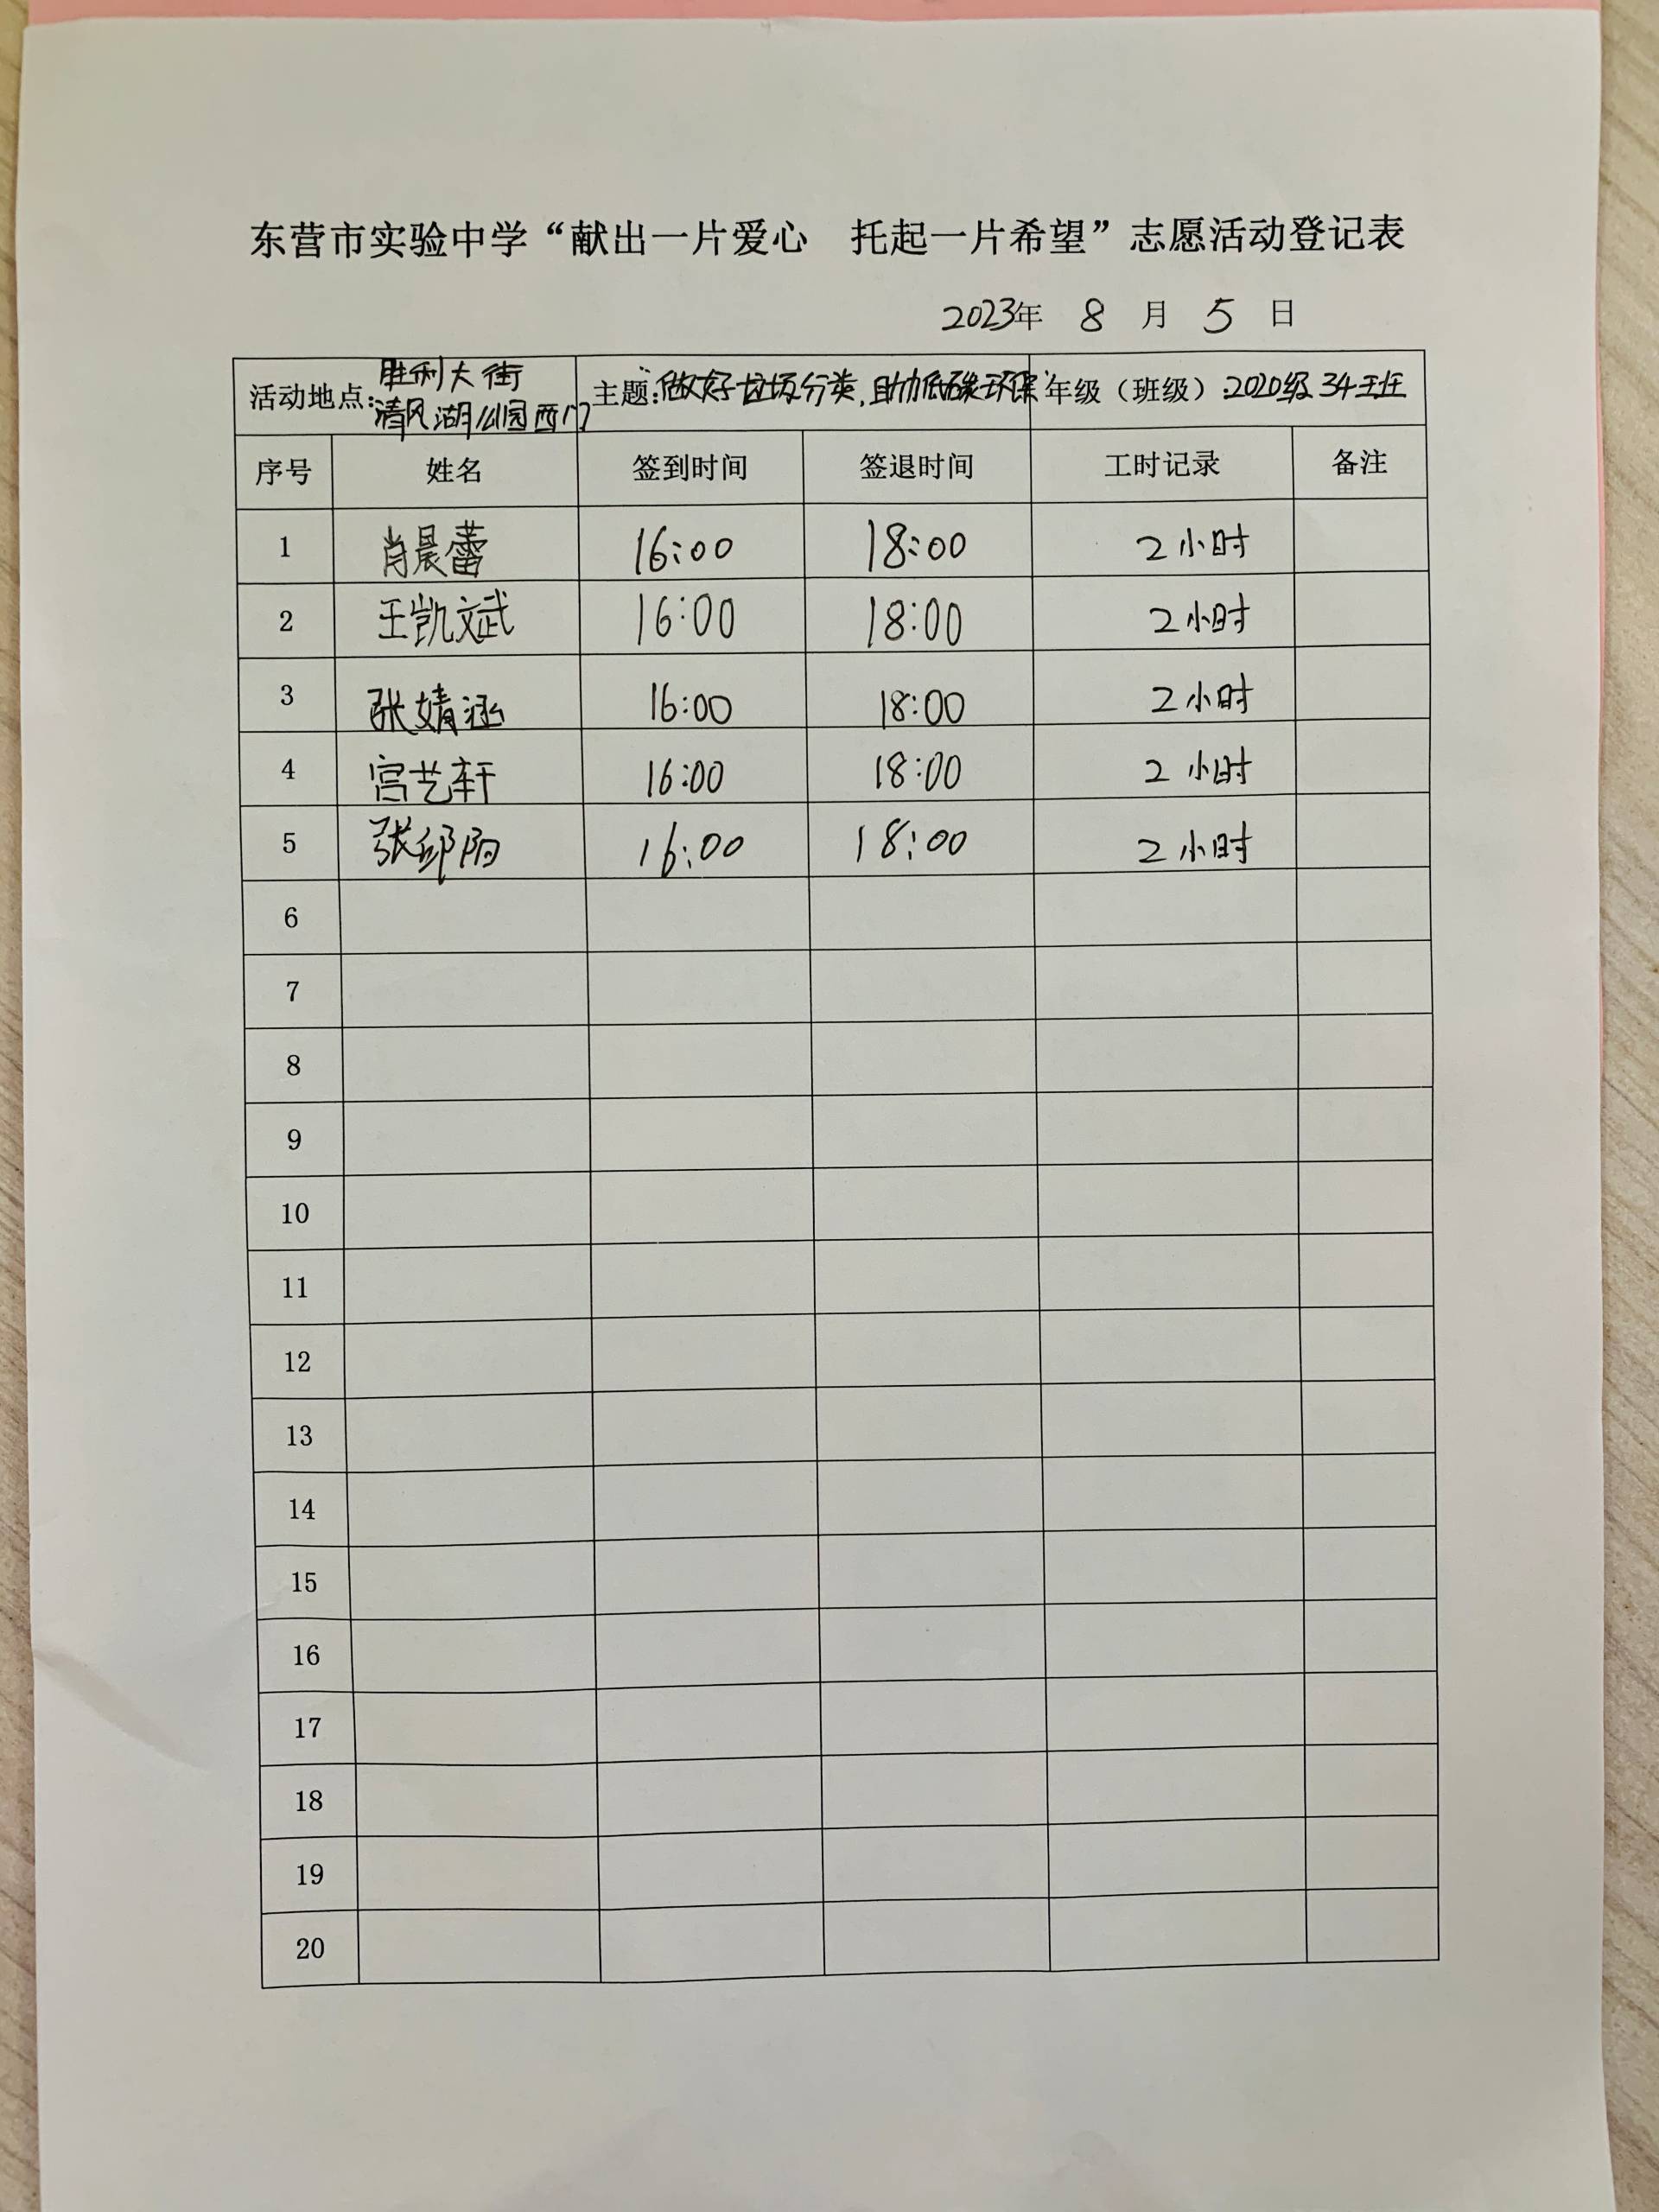 东营市实验中学“献出一片爱心 托起一片希望”志愿活动登记表
2023年 8 月 5 日
活动地点: 胜利大街 清风湖公园西门 主题:“做好垃圾分类,助力低碳环保” 年级(班级):2020级34班
序号 姓名 签到时间 签退时间 工时记录 备注
1 肖晨蕾 16:00 18:00 2小时
2 王凯文斌 16:00 18:00 2小时
3 张婧涵 16:00 18:00 2小时
4 宫艺轩 16:00 18:00 2小时
5 张邱阳 16:00 18:00 2小时
6
7
8
9
10
11
12
13
14
15
16
17
18
19
20